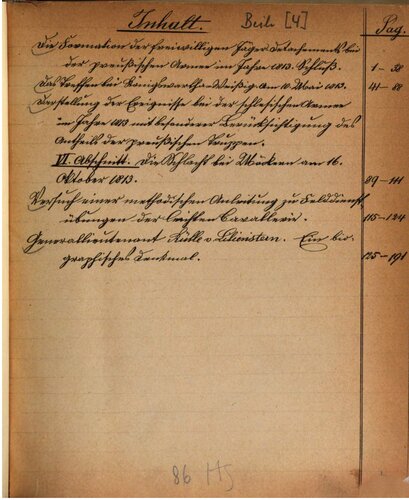 Inhalt. Beih. [4] Pag.
Die Formation der freiwilligen Jäger-Detachements bei
der preußischen Armee im Jahre 1813. Schluß. 1-38
Das Treffen bei Königswartha-Weißig. Am 19. Mai 1813. 41-88
Darstellung der Ereignisse bei der schlesischen Armee
im Jahre 1813 mit besonderer Berücksichtigung des
Antheils der preußischen Truppen.
VI Abschnitt. Die Schlacht bei Möckern am 16.
Oktober 1813. 89-111
Versuch einer methodischen Anleitung zu Felddienst-
übungen der leichten Cavallerie. 115-124
Generallieutenant Rühle v. Lilienstern. Ein bio-
graphisches Denkmal. 125-191
86 Hs